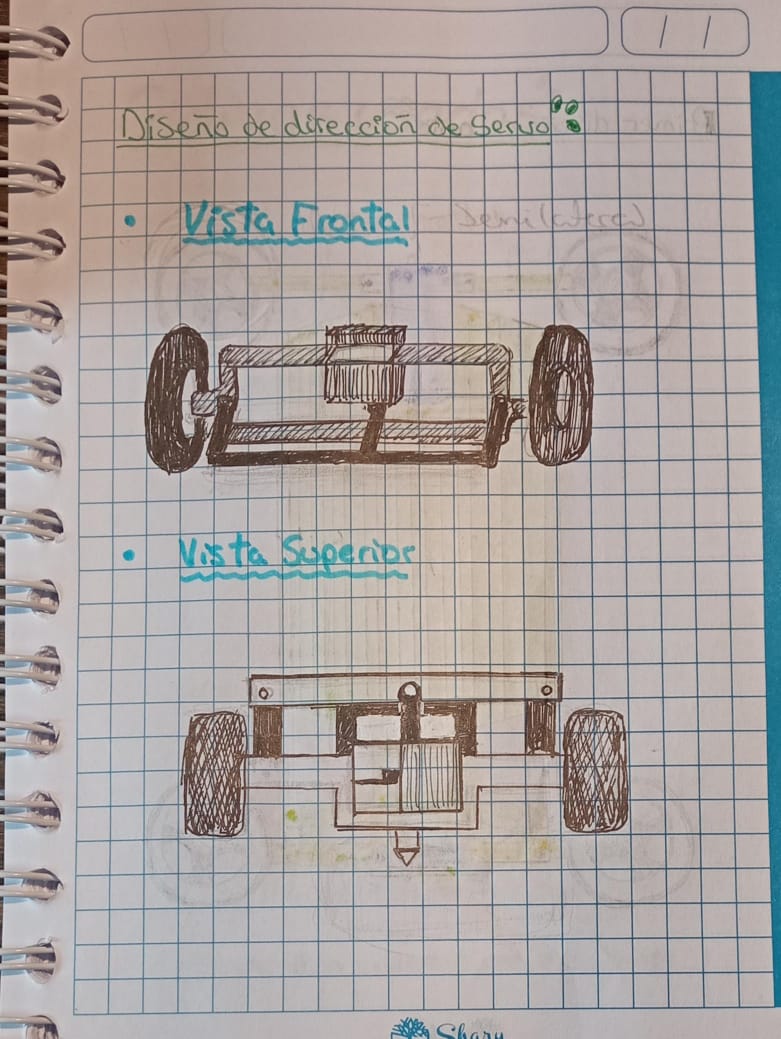 / /
Diseño de dirección de Servo:
• Vista Frontal
• Vista Superior